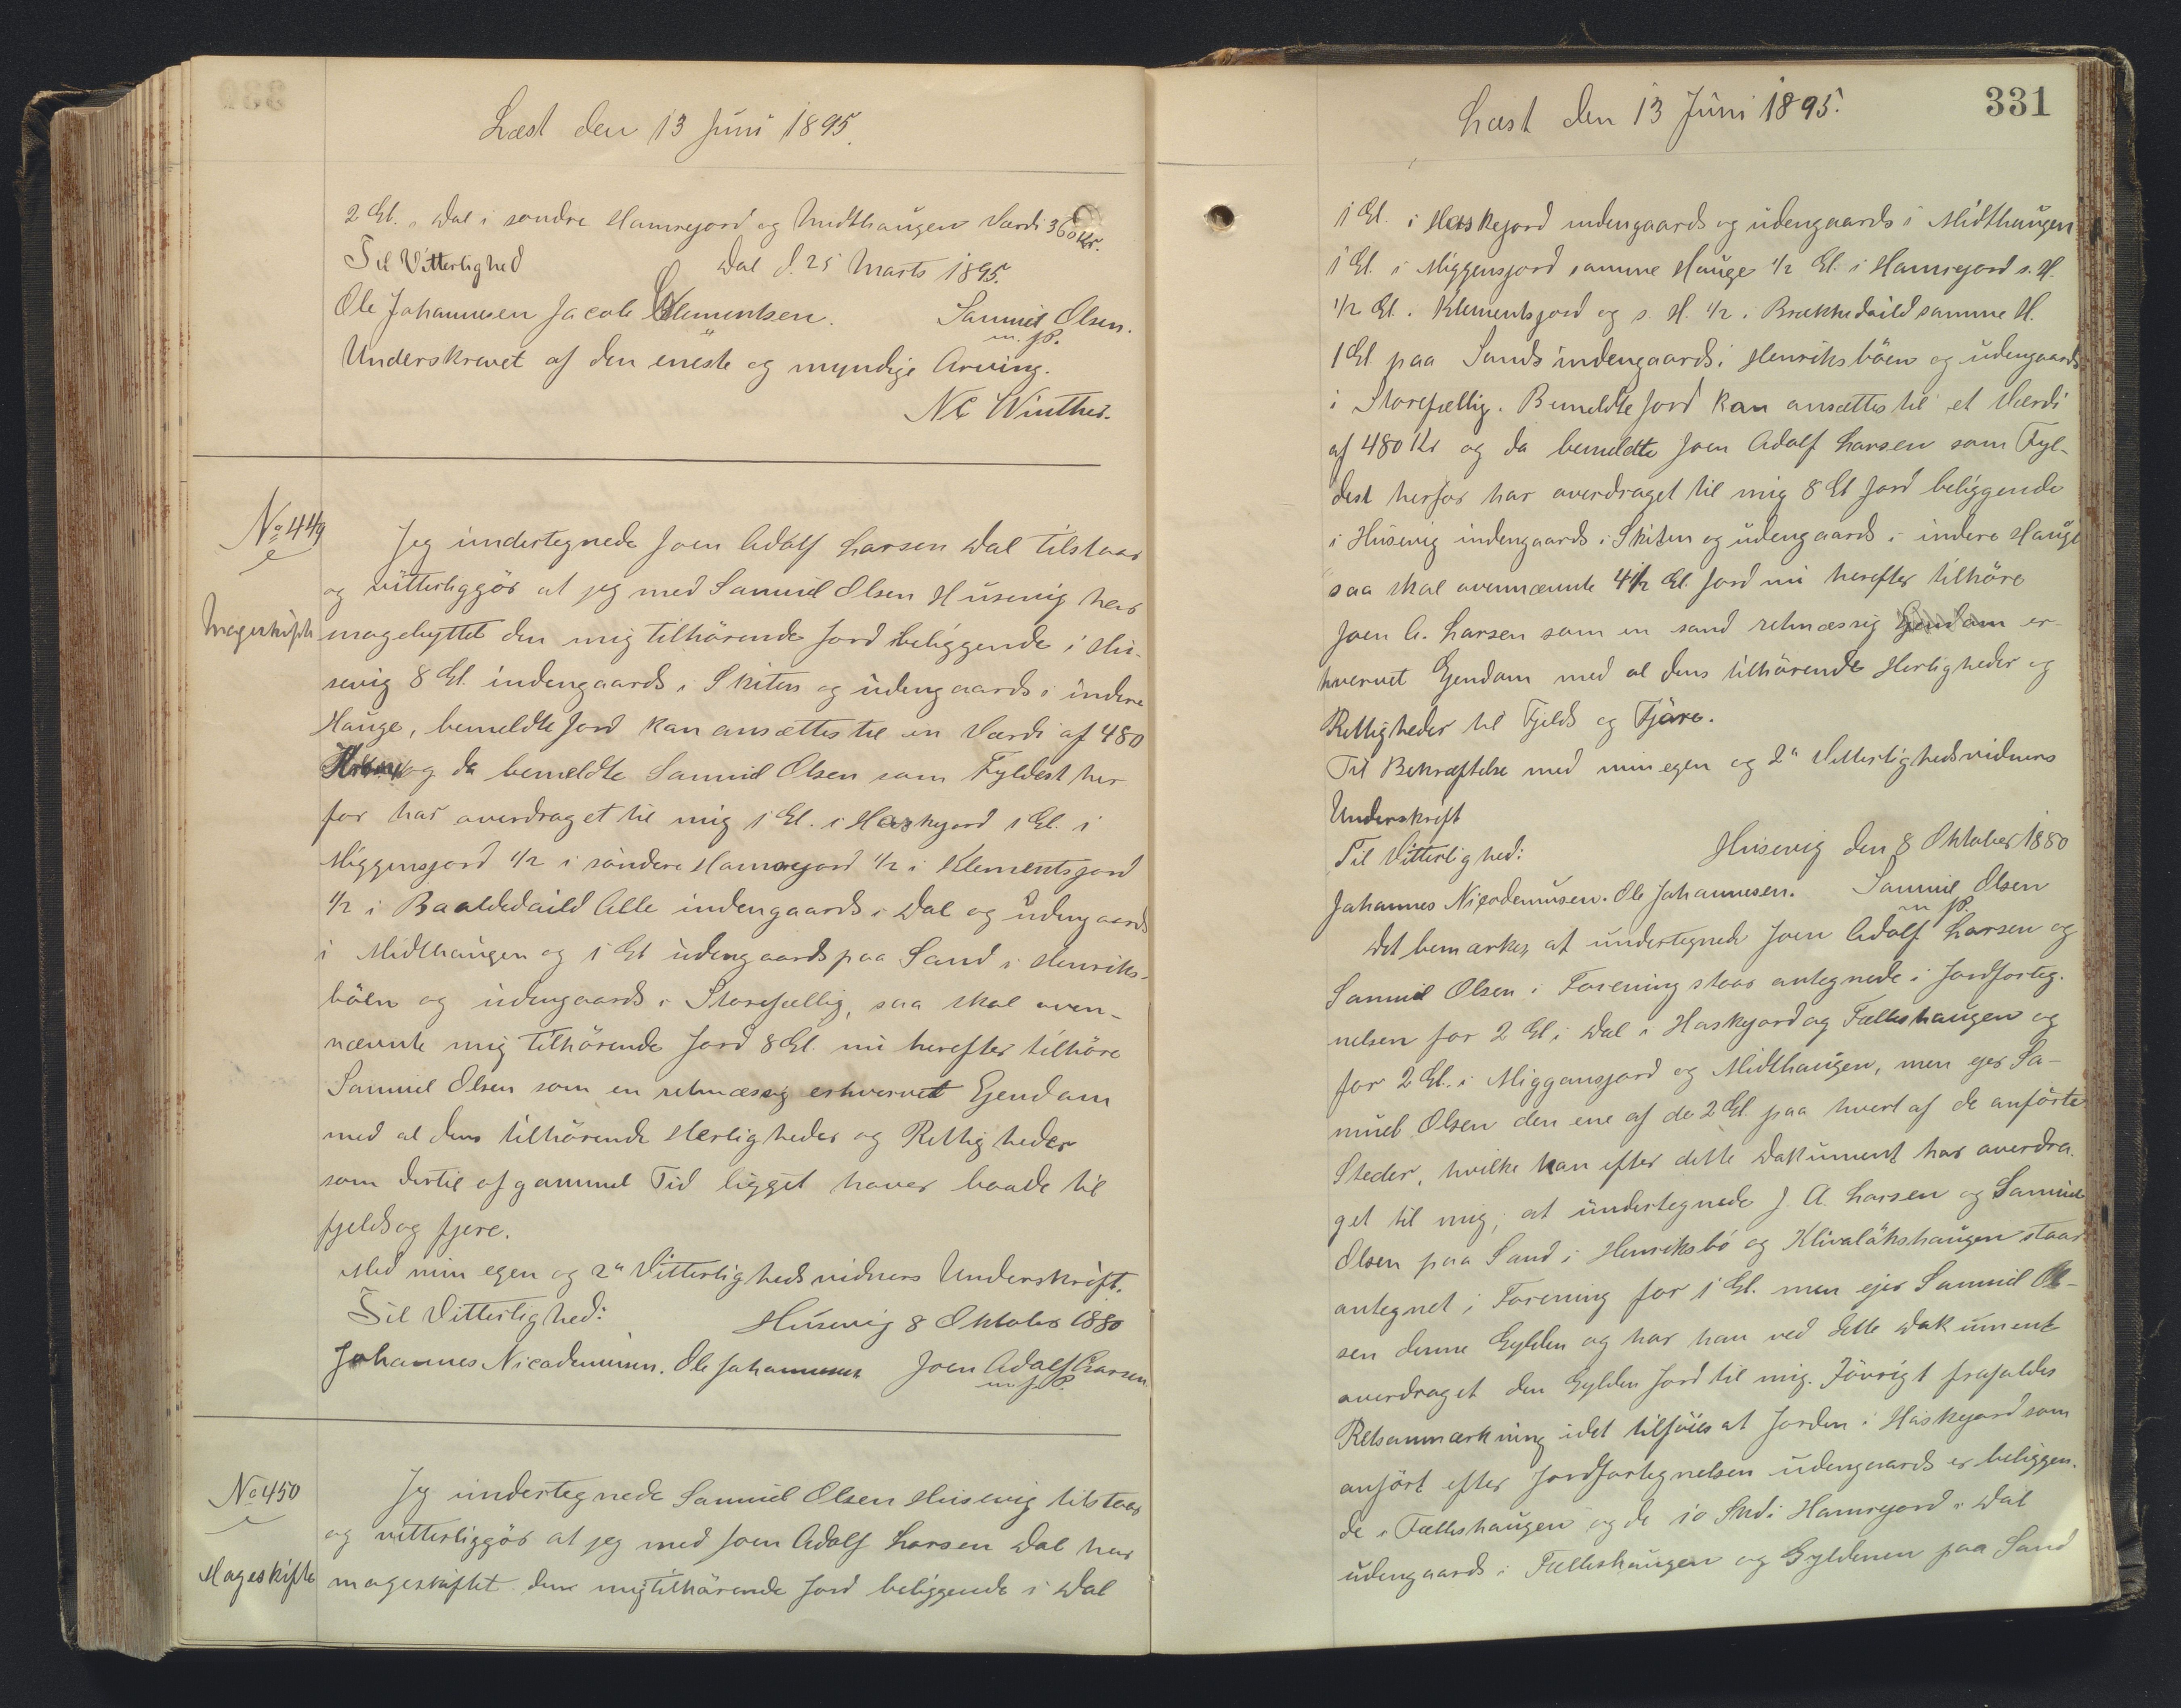 Læst den 13 Juni 1895.
2 Gl. i Dal i søndre Hamrejord og Midthaugen Værdi 360 Kr.
Til Vitterlighed Dal d. 25 Marts 1895.
Ole Johannesen Jacob Klementsen. Samuel Olsen.
m. f. P.
Underskrevet af den eneste og myndige Arving.
N C Winther.
No 449
Jeg undertegnede Joen Adolf Larsen Dal tilstaar
og vitterliggör at jeg med Samuel Olsen Husevig har
Mageskifte magebyttet den mig tilhörende Jord beliggende i Hu-
sevig 8 Gl. indengaards i Skiten og udengaards i indere
Hauge, bemeldte Jord kan ansættes til en Værdi af 480
og da bemeldte Samuel Olsen som Fyldest her
for har overdraget til mig 1 Gl. i Haskejord 1 Gl. i
Miggensjord 1/2 i söndere Hamrejord 1/2 i Klementsjord
1/2 i Baaldedaild Alle indengaards i Dal og udengaards
i Midthaugen og 1 Gl udengaards paa Sand i Henriks-
böen og udengaards i Storefællig, saa skal oven-
nævnte mig tilhörende Jord 8 Gl. nu herefter tilhöre
Samuel Olsen som en retmæssig erhvervet Ejendom
med al dens tilhörende Herligheder og Rettigheder
som dertil af gammel Tid ligget haver baade til
fjelds og fjere.
Med min egen og 2de Vitterlighedsvidners Underskrift.
Til Vitterlighed: Husevig 8 Oktober 1880
Johannes Nicodemusen. Ole Johannesen Joen Adolf Larsen.
m. f. P.
No 450
Jeg undertegnede Samuel Olsen Husevig tilstaar
og vitterliggör at jeg med Joen Adolf Larsen Dal har
Mageskifte mageskiftet den mig tilhörende Jord beliggende i Dal
331
Læst den 13 Juni 1895.
1 Gl. i Haskejord indengaards og udengaards i Midthaugen
1 Gl. i Miggensjord samme Hauge 1/2 Gl. i Hamrejord s. H.
1/2 Gl. i Klementsjord og s. H. 1/2 i Brekkedaild samme H.
1 Gl paa Sands indengaards i Henriksböen og udengaards
i Storefællig. Bemeldte Jord kan ansættes til et Værdi
af 480 Kr og da bemeldte Joen Adolf Larsen som Fyl-
dest herfor har overdraget til mig 8 Gl Jord beliggende
i Husevig indengaards i Skiten og udengaards i indere Hauge
saa skal ovennævnte 4 1/2 Gl. Jord nu herefter tilhöre
Joen A. Larsen som en sand retmæssig Ejendom er-
hvervet Ejendom med al dens tilhörende Herligheder og
Rettigheder til Fjelds og Fjære.
Til Bekræftelse med min egen og 2de Vitterlighedsvidners
Underskrift
Til Vitterlighed: Husevig den 8 Oktober 1880
Johannes Nicodemusen. Ole Johannesen. Samuel Olsen
m f P.
Det bemærkes, at undertegnede Joen Adolf Larsen og
Samuel Olsen i Forening staar antegnede i Jordforteg-
nelsen for 2 Gl. i Dal i Haskejord og Fælleshaugen og
for 2 Gl. i Miggansjord og Midthaugen, men ejer Sa-
muel Olsen den ene af de 2 Gl. paa hvert af de anförte
Steder, hvilke han efter dette Dokument har overdra-
get til mig; at undertegnede J. A. Larsen og Samuel
Olsen paa Sand i Henriksbö og Klivalökshaugen staar
antegnet i Forening for 1 Gl. men ejer Samuel Ol-
sen denne Gylden og har han ved dette Dokument
overdraget den Gylden Jord til mig. Jövrigt frafaldes
Retsanmærkning idet tilföies at Jorden i Haskejord som
anfört efter Jordfortegnelsen udengaards er beliggen-
de i Fælleshaugen og de 10 Skd i Hamrejord i Dal
udengaards i Fælleshaugen og Gyldenen paa Sand